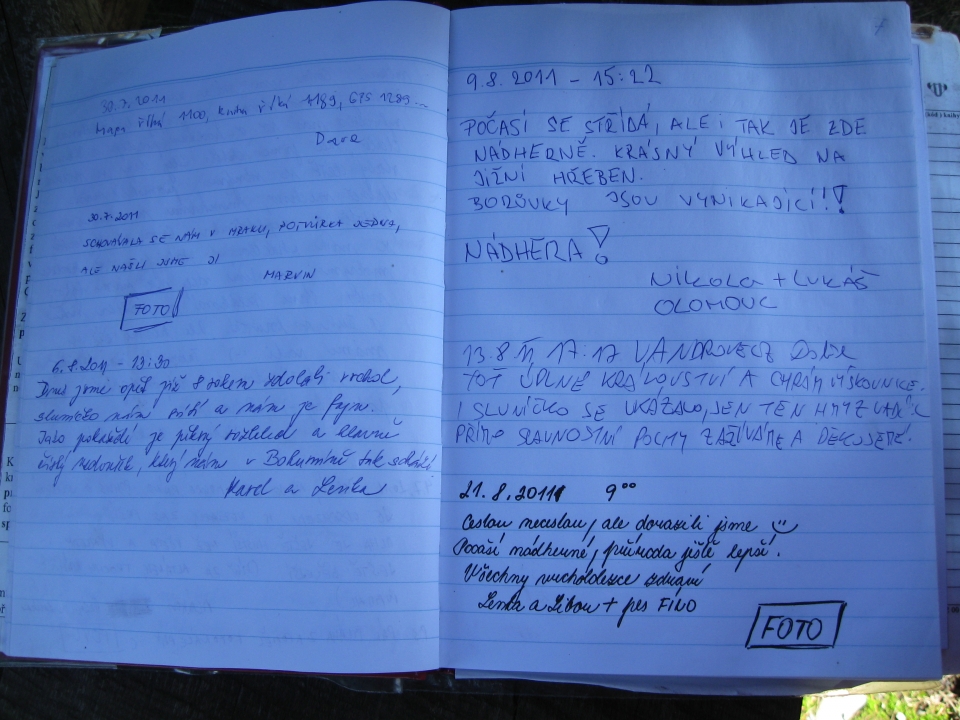 30.7.2011
Mapa říká 1100, kniha říká 1189, GPS 1289...
Dara
30.7.2011
SCHOVÁVALA SE NÁM V MRAKU, POTVŮRKA JEDNA,
ALE NAŠLI JSME JI
MARVIN
FOTO
6.8.2011 - 13:30
Dnes jsme opět již 8 rokem zdolali vrchol,
sluníčko nám svítí a nám je fajn.
Jako pokaždé je pěkný rozhled a hlavně
čistý vzduch, který nám v Bohumíně tak schází
Karel a Lenka
9.8.2011 - 15:22
POČASÍ SE STŘÍDÁ, ALE I TAK JE ZDE
NÁDHERNĚ. KRÁSNÝ VÝHLED NA
JIŽNÍ HŘEBEN.
BORŮVKY JSOU VYNIKAJÍCÍ!!!
NÁDHERA!
NIKOLA + LUKÁŠ
OLOMOUC
13.8.11 17:17 VANDROVECZ
TOŤ ÚPLNÉ KRÁLOVSTVÍ A CHRÁM VÝŠKOVNICE.
I SLUNÍČKO SE UKÁZALO, JEN TEN HMYZ
PŘÍMO SLAVNOSTNÍ POCITY ZAŽÍVÁME A DĚKUJEME.
21.8.2011 9⁰⁰
Cestou necestou, ale dorazili jsme
Počasí nádherné, příroda ještě lepší.
Všechny vrcholezce zdraví
Lenka a Libou + pes FIDO
FOTO